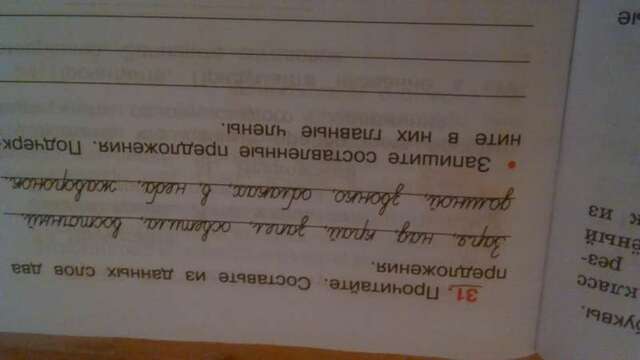 31. Прочитайте. Составьте из данных слов два
предложения.
Заря, над, край, запел, осветила, восточный,
долиной, звонко, облаках, в, неба, жаворонок.
• Запишите составленные предложения. Подчерк-
ните в них главные члены.
буквы.
класс
рез-
ёный
к из
ые